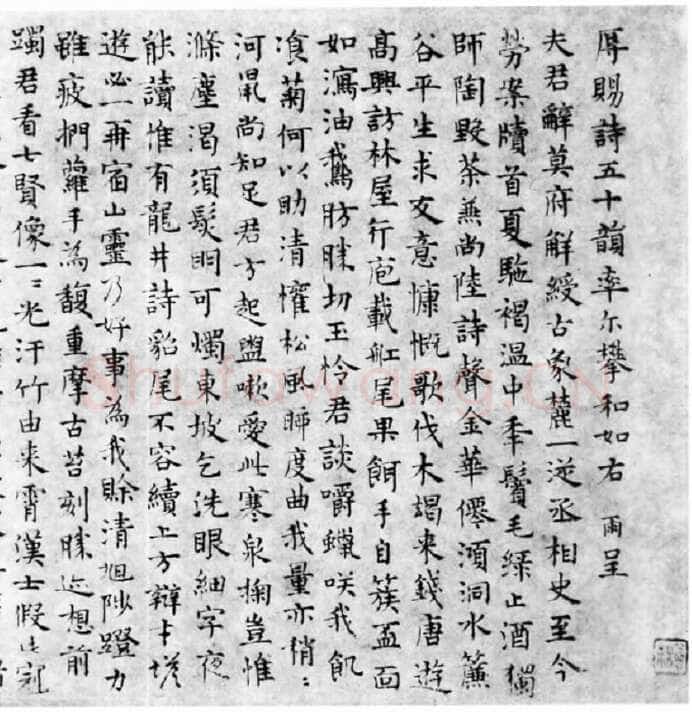 辱賜詩五十韻率尔攀和如右 雨呈
夫君辭莫府解綬古象麓一逆丞相史至今
勞案牘首夏駈褐温中秊鬢毛緑止酒獨
師陶毀茶兼尚陸詩聲金華僊澒洞水簾
谷平生求友意慷慨歌伐木朅来錢唐遊
高興訪林屋行庖載缸尾果餌手自簇盃面
如瀉油我鵞肪勝切玉怜君談嚼蠟咲我飢
飡菊何以助清懽松風時度曲我量亦稍〻
河鼠尚知足君方起盥嗽愛此寒泉掬豈惟
滌塵渴須髮明可燭東坡乞洗眼細字夜
能讀惟有龍井詩貂尾不容續上方辯才塔
遊必一再宿山靈乃好事為我賒清旭陟蹬力
雖疲捫蘿手為馥重摩古苔刻勝迹想前
躅君看七賢像一〻光汗竹由来霄漢士假此冠
Shufawang.CN